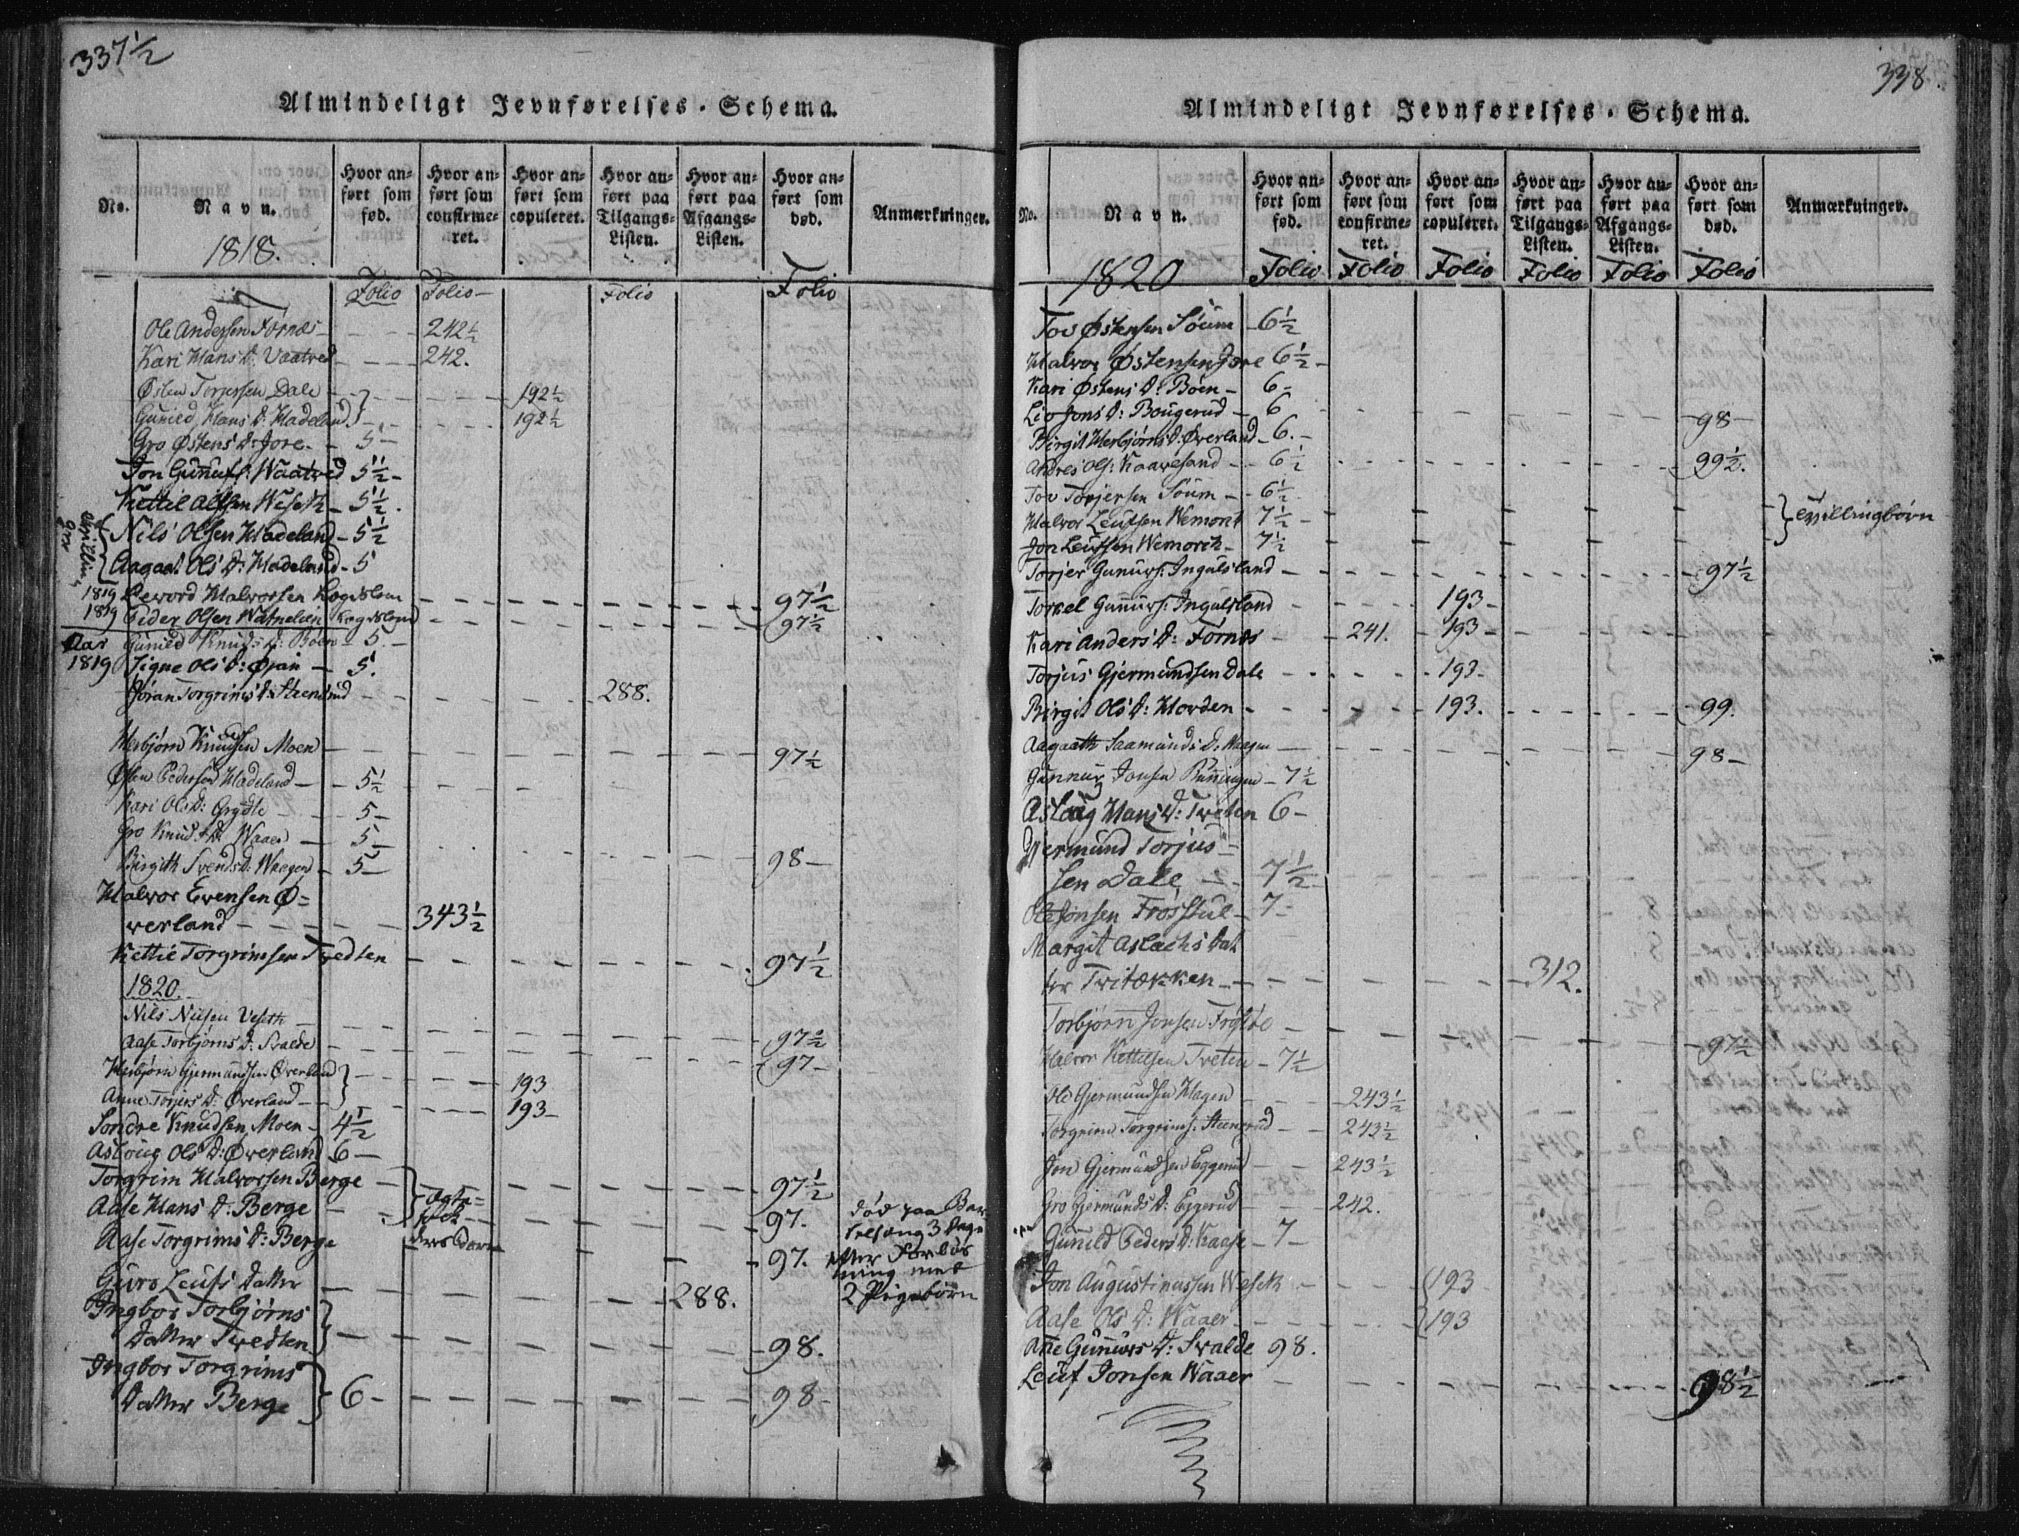 337½
Almindeligt Jevnførelses-Schema.
No.
Navn.
1818.
Hvor anført som fød.
Hvor anført som confirmeret.
Hvor anført som copuleret.
Hvor anført paa Tilgangs-Listen.
Hvor anført paa Afgangs-Listen.
Hvor anført som død.
Anmærkninger.
Folio Folio Folio Folio
Ole Andersen Fornæs 242½
Kari Hans D: Vaatved 242.
Østen Torjussen Dale 192½
Gunild Hans D: Hadeland 192½
Gro Østens D: Jore 5
Jon Gunnufs: Waatved 5½
Kettil Olssen Weseth 5½
Nils Olsen Hadeland 5½
Aagaat Ols D: Hadeland 5
1819 Halvorsen 97½
1819 Peder Olsen 97½
Aar Gunild Knuds D: Boen 5
1819 Signe Ols D: Øian 5.
Jøran Torgrims D: Steenrud 288.
Herbjørn Knudsen Moen 97½
Østen Pedersen Hadeland 5½
Kari Ols D: Grydte 5
Gro Knuds D: Waaer 5
Birgith Svends D: Waagen 5 98
Halvor Evensen Ø=
verland 343½
Kettil Torgrimsen Tvedten 97½
1820.
Nils Nilsen Veseth 97½
Aase Torbjørns D: Svalde 97
Herbjørn Gjermundsen Øverland 193
Anne Torjers D: Øverland 193
Sondre Knudsen Moen 4½
Asloug Ols D: Øverland 6
Torgrim Halvorsen Berge 97½
Aase Hans D: Berge Ægte= 97. død paa Bar
folk selseng 3 Dage
Aase Torgrims D: Berge 97. efter Forløs
ning med
Guro Leufs Datter 288. 2 Pigebørn
Ingbor Torbjørns
Datter Tvedten 98.
Ingbor Torgrims
Datter Berge 6 98
338.
Almindeligt Jevnførelses-Schema.
No.
Navn.
1820
Hvor anført som fød.
Hvor anført som confirmeret.
Hvor anført som copuleret.
Hvor anført paa Tilgangs-Listen.
Hvor anført paa Afgangs-Listen.
Hvor anført som død.
Anmærkninger.
Folio Folio Folio Folio Folio Folio
Tov Østensen Søum 6½
Halvor Østensen Jore 6½
Kari Østens D: Boen 6
Liv Jons D: Bougerud 6 98
Birgit Herbjørns D: Øverland 6.
Andres Ols: Kaavesand 6½ 99½.
Tov Torjersen Søum 6½
Halvor Leufsen Wemork 7½ tvillingbørn
Jon Leufsen Wemork 7½
Torjer Gunnufs: Ingulsland 97½
Torkel Gunnufs: Ingulsland 193
Kari Anders D: Fornæs 241. 193
Torjus Gjermundsen Dale 193
Birgit Ols D: Horden 193. 99.
Aagaath Saamunds D: Waagen 98
Gunnuf Jonsen 7½
Aslaug Hans D: Tveten 6
Gjermund Torjus=
sen Dale 7½
Ole Jonsen Frøistul 7
Margit Aslachs Dat
ter Tritækken 312.
Torbjørn Jonsen Frøistøl 97½
Halvor Kettilsen Tveten 7½
Ole Gjermundsen Hagen 243½
Torgrim Torgrims: Steenrud 243½
Jon Gjermundsen Eggerud 243½
Gro Gjermunds D: Eggerud 242.
Gunild Peders D: Kaase 7
Jon Augustinussen Weseth 193
Aase Ols D: Waaer 193
Ane Gunnufs D: Svalde 98.
Leuf Jonsen Waaer 98½